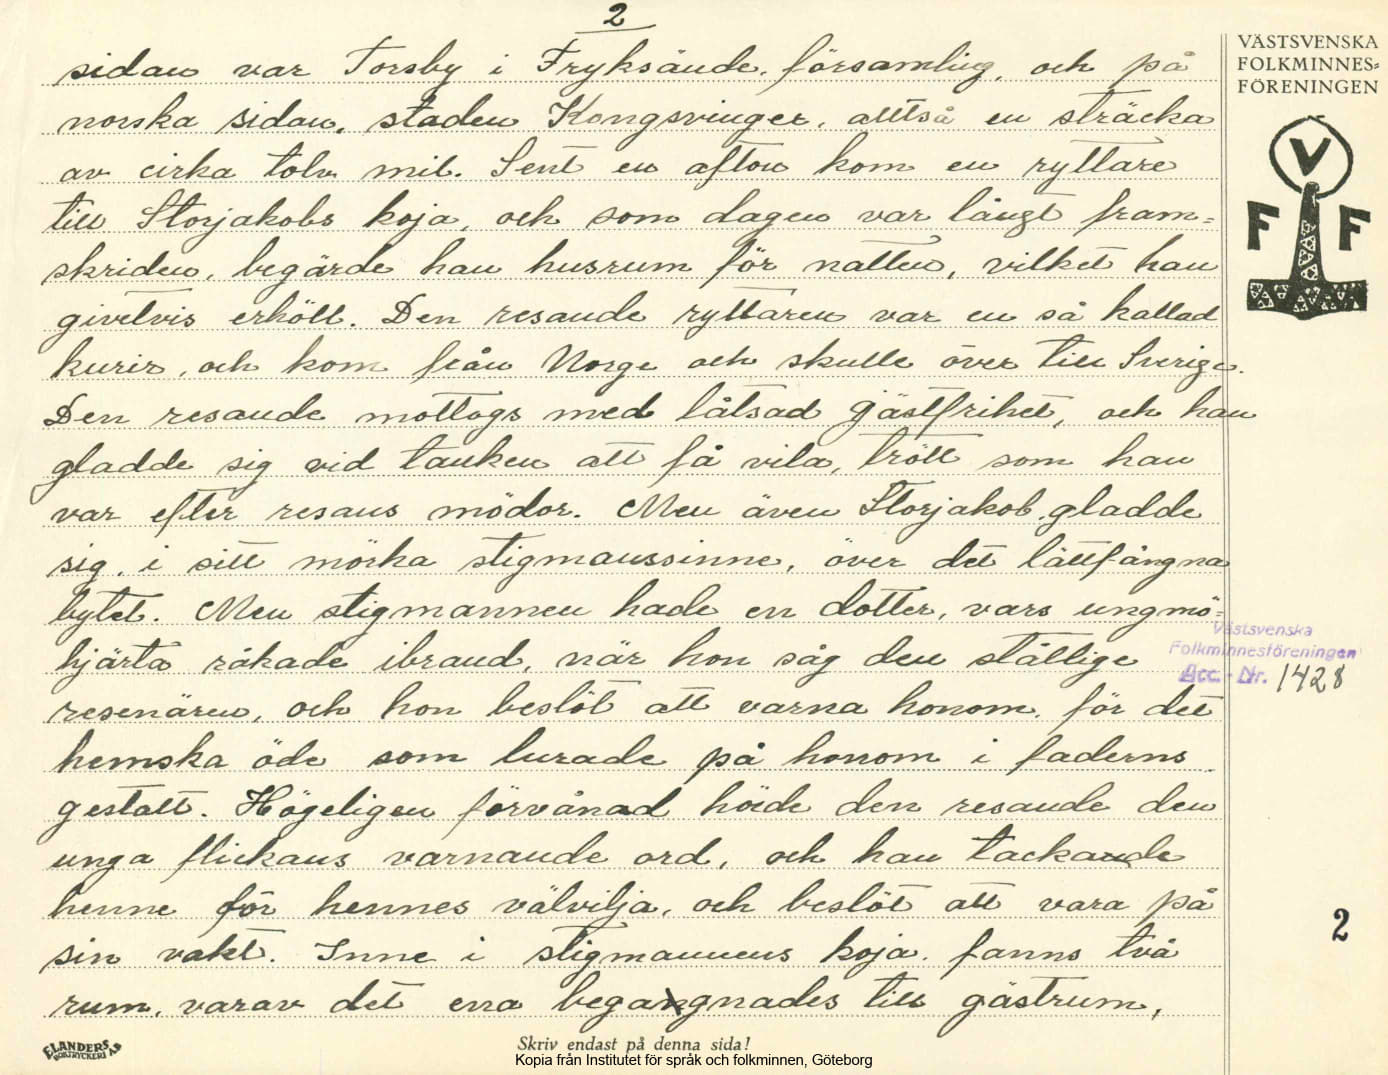 2
sidan var Torsby i Fryksände, församling, och på
norska sidan, staden Kongsvinger, alltså en sträcka
av cirka tolv mil. Sent en afton kom en ryttare
till Storjakobs koja, och som dagen var långt fram=
skriden, begärde han husrum för natten, vilket han
givetvis erhöll. Den resande ryttaren var en så kallad
kurir, och kom från Norge och skulle över till Sverige.
Den resande mottogs med låtsad gästfrihet, och han
gladde sig vid tanken att få vila, trött som han
var efter resans mödor. Men även Storjakob gladde
sig, i sitt mörka stigmanssinne, över det lättfångna
bytet. Men stigmannen hade en dotter, vars ungmö=
hjärta råkade ibrand, när hon såg den ståtlige
resenären, och hon beslöt att varna honom, för det
hemska öde som lurade på honom i faderns
gestalt. Högeligen förvånad hörde den resande den
unga flickans varnande ord, och han tackade
henne för hennes välvilja, och beslöt att vara på
sin vakt. Inne i stigmannens koja, fanns två
rum, varav det ena begagnades till gästrum,
VÄSTSVENSKA
FOLKMINNES=
FÖRENINGEN
V
F F
Västsvenska
Folkminnesföreningen
Acc. Nr. 1428
2
ELANDERS
BOKTRYCKERI AB
Skriv endast på denna sida!
Kopia från Institutet för språk och folkminnen, Göteborg